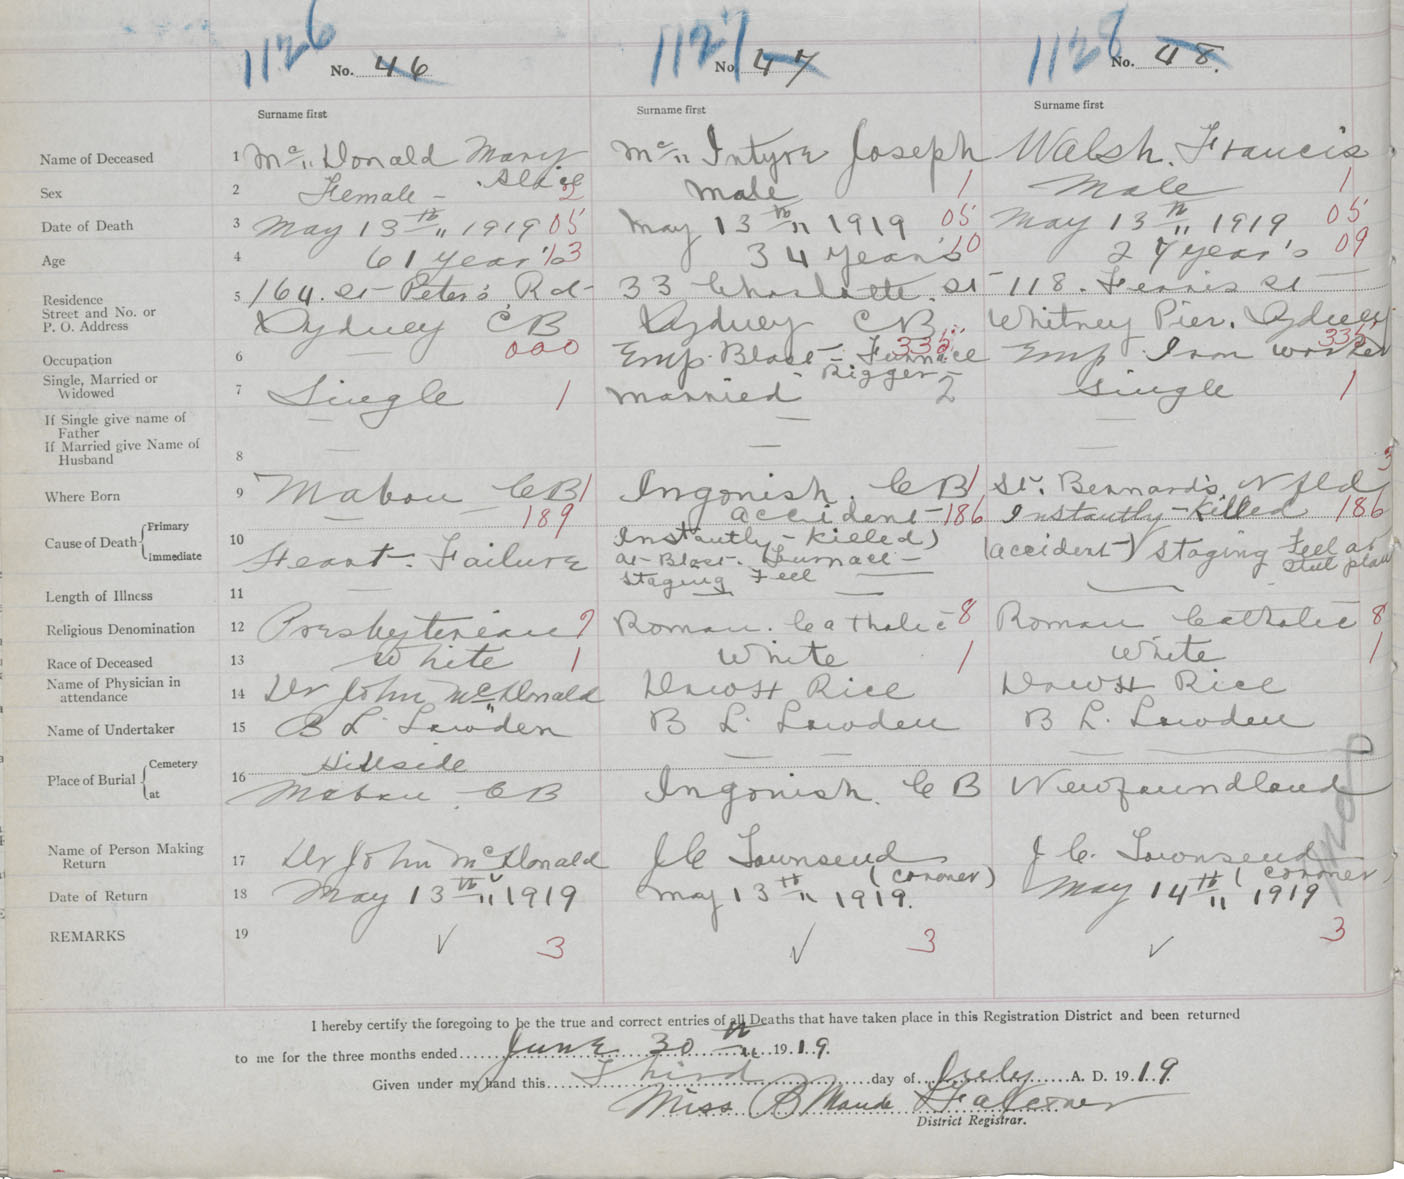 1126 1127 1128
No. 46 No. 47 No. 48.
Surname first Surname first Surname first
Name of Deceased 1 Mc Donald Mary Mc Intyre Joseph Walsh. Francis
Sex 2 Female - 2 Male 1 Male 1
Date of Death 3 May 13th 1919 05 May 13th 1919 05 May 13th 1919 05
Age 4 61 year's 63 34 year's 10 27 year's 09
Residence
Street and No. or
P. O. Address
5 164. St Peter's Rd 33 Charlotte. St 118. Ferris St
Sydney CB Sydney CB Whitney Pier. Sydney
Occupation 6 — 000 Emp. Blast - Furnace 335 Emp Iron worker 335
- Rigger -
Single, Married or
Widowed
7 Single 1 Married 2 Single 1
If Single give name of
Father
If Married give Name of
Husband
8 — — —
Where Born 9 Mabou CB 1 Ingonish. CB 1 St. Bernard's Nfld 3
Cause of Death { Primary
Immediate
10 — 189 accident 186 Instantly-Killed 186
Heart-Failure Instantly-Killed) (accident) Staging Feel at
at-Blast. Furnace - Steel plant
Staging Feel
Length of Illness 11 — — —
Religious Denomination 12 Presbyterian 7 Roman. Catholic 8 Roman Catholic 8
Race of Deceased 13 White 1 White 1 White 1
Name of Physician in
attendance
14 Dr John McDonald Drs H Rice Drs H Rice
Name of Undertaker 15 B L. Lowden B L. Lowden B L. Lowden
Place of Burial { Cemetery
at
16 Hillside — — —
Mabou. CB Ingonish. CB Newfoundland
Name of Person Making
Return
17 Dr John McDonald J C Townsend J C. Townsend
(coroner) (coroner)
Date of Return 18 May 13th 1919 May 13th 1919. May 14th 1919
REMARKS 19 ✓ 3 ✓ 3 ✓ 3
I hereby certify the foregoing to be the true and correct entries of all Deaths that have taken place in this Registration District and been returned
to me for the three months ended June 30th 1919.
Given under my hand this Third day of July A. D. 1919.
Miss B Maude Falconer
District Registrar.